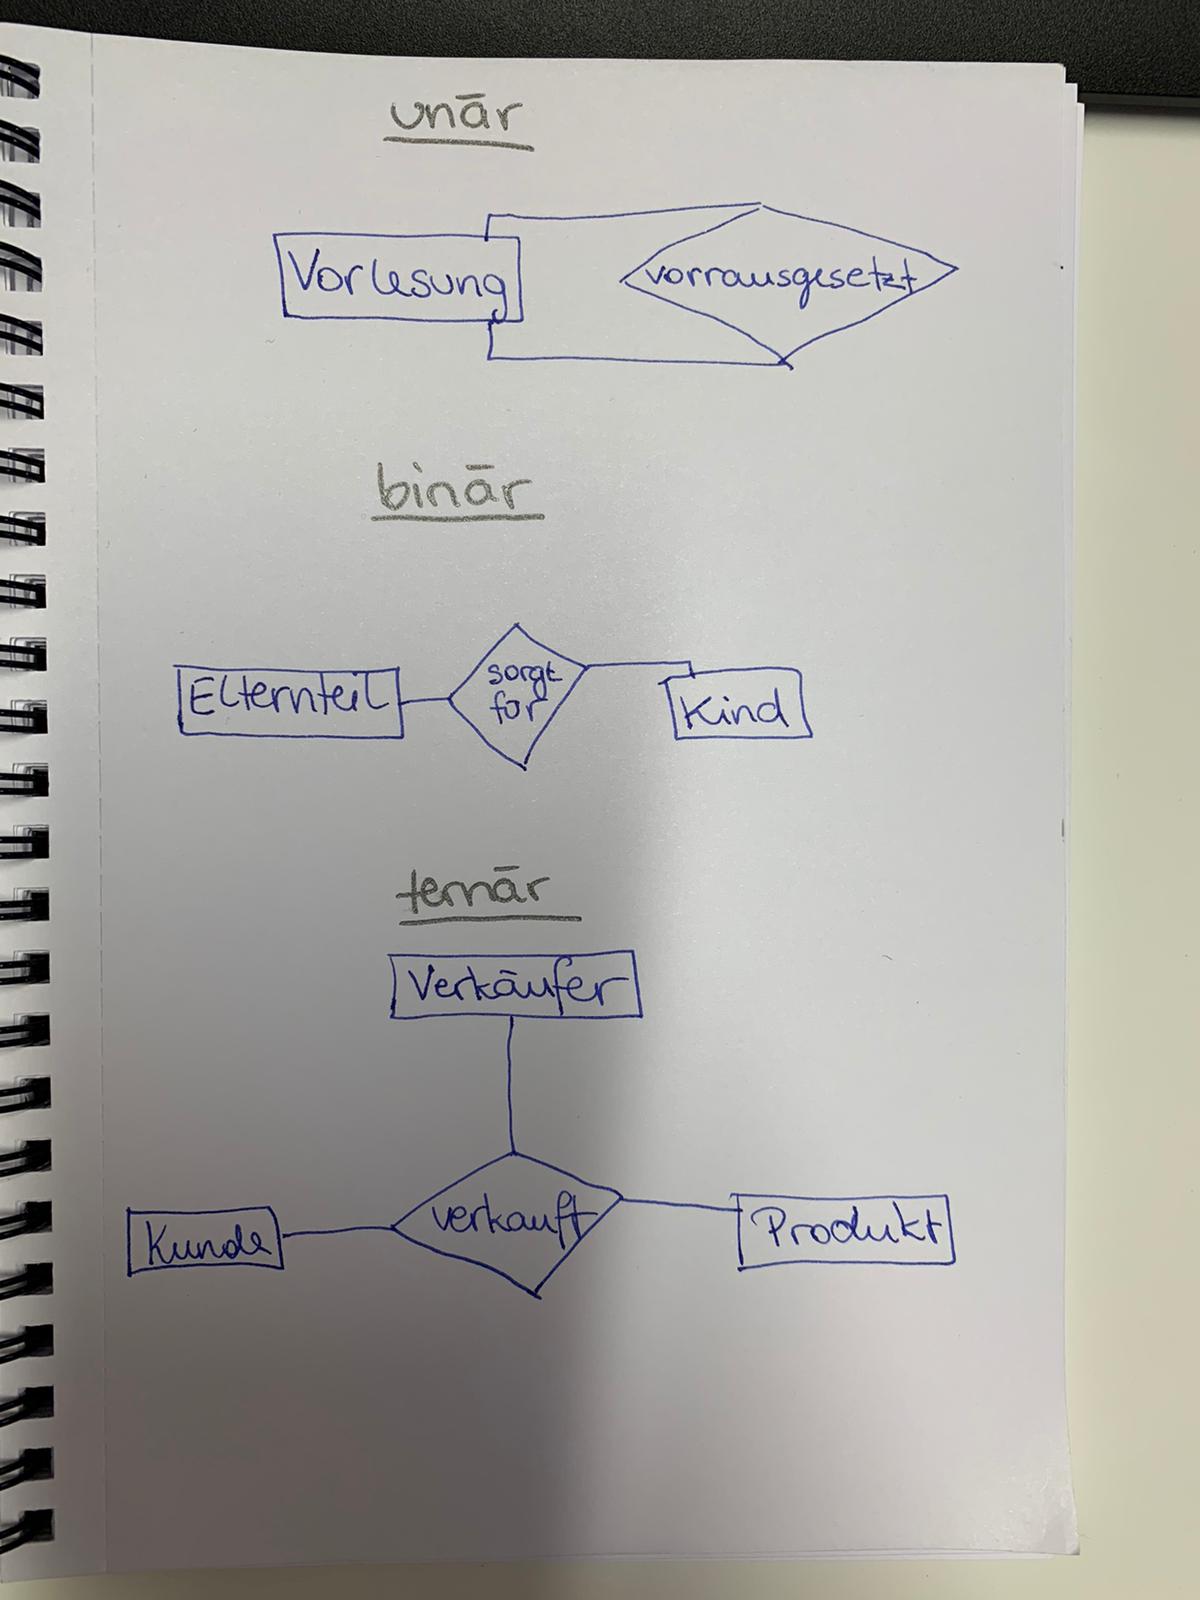 unär
Vorlesung
vorrausgesetzt
binär
Elternteil
sorgt
für
Kind
ternär
Verkäufer
Kunde
verkauft
Produkt